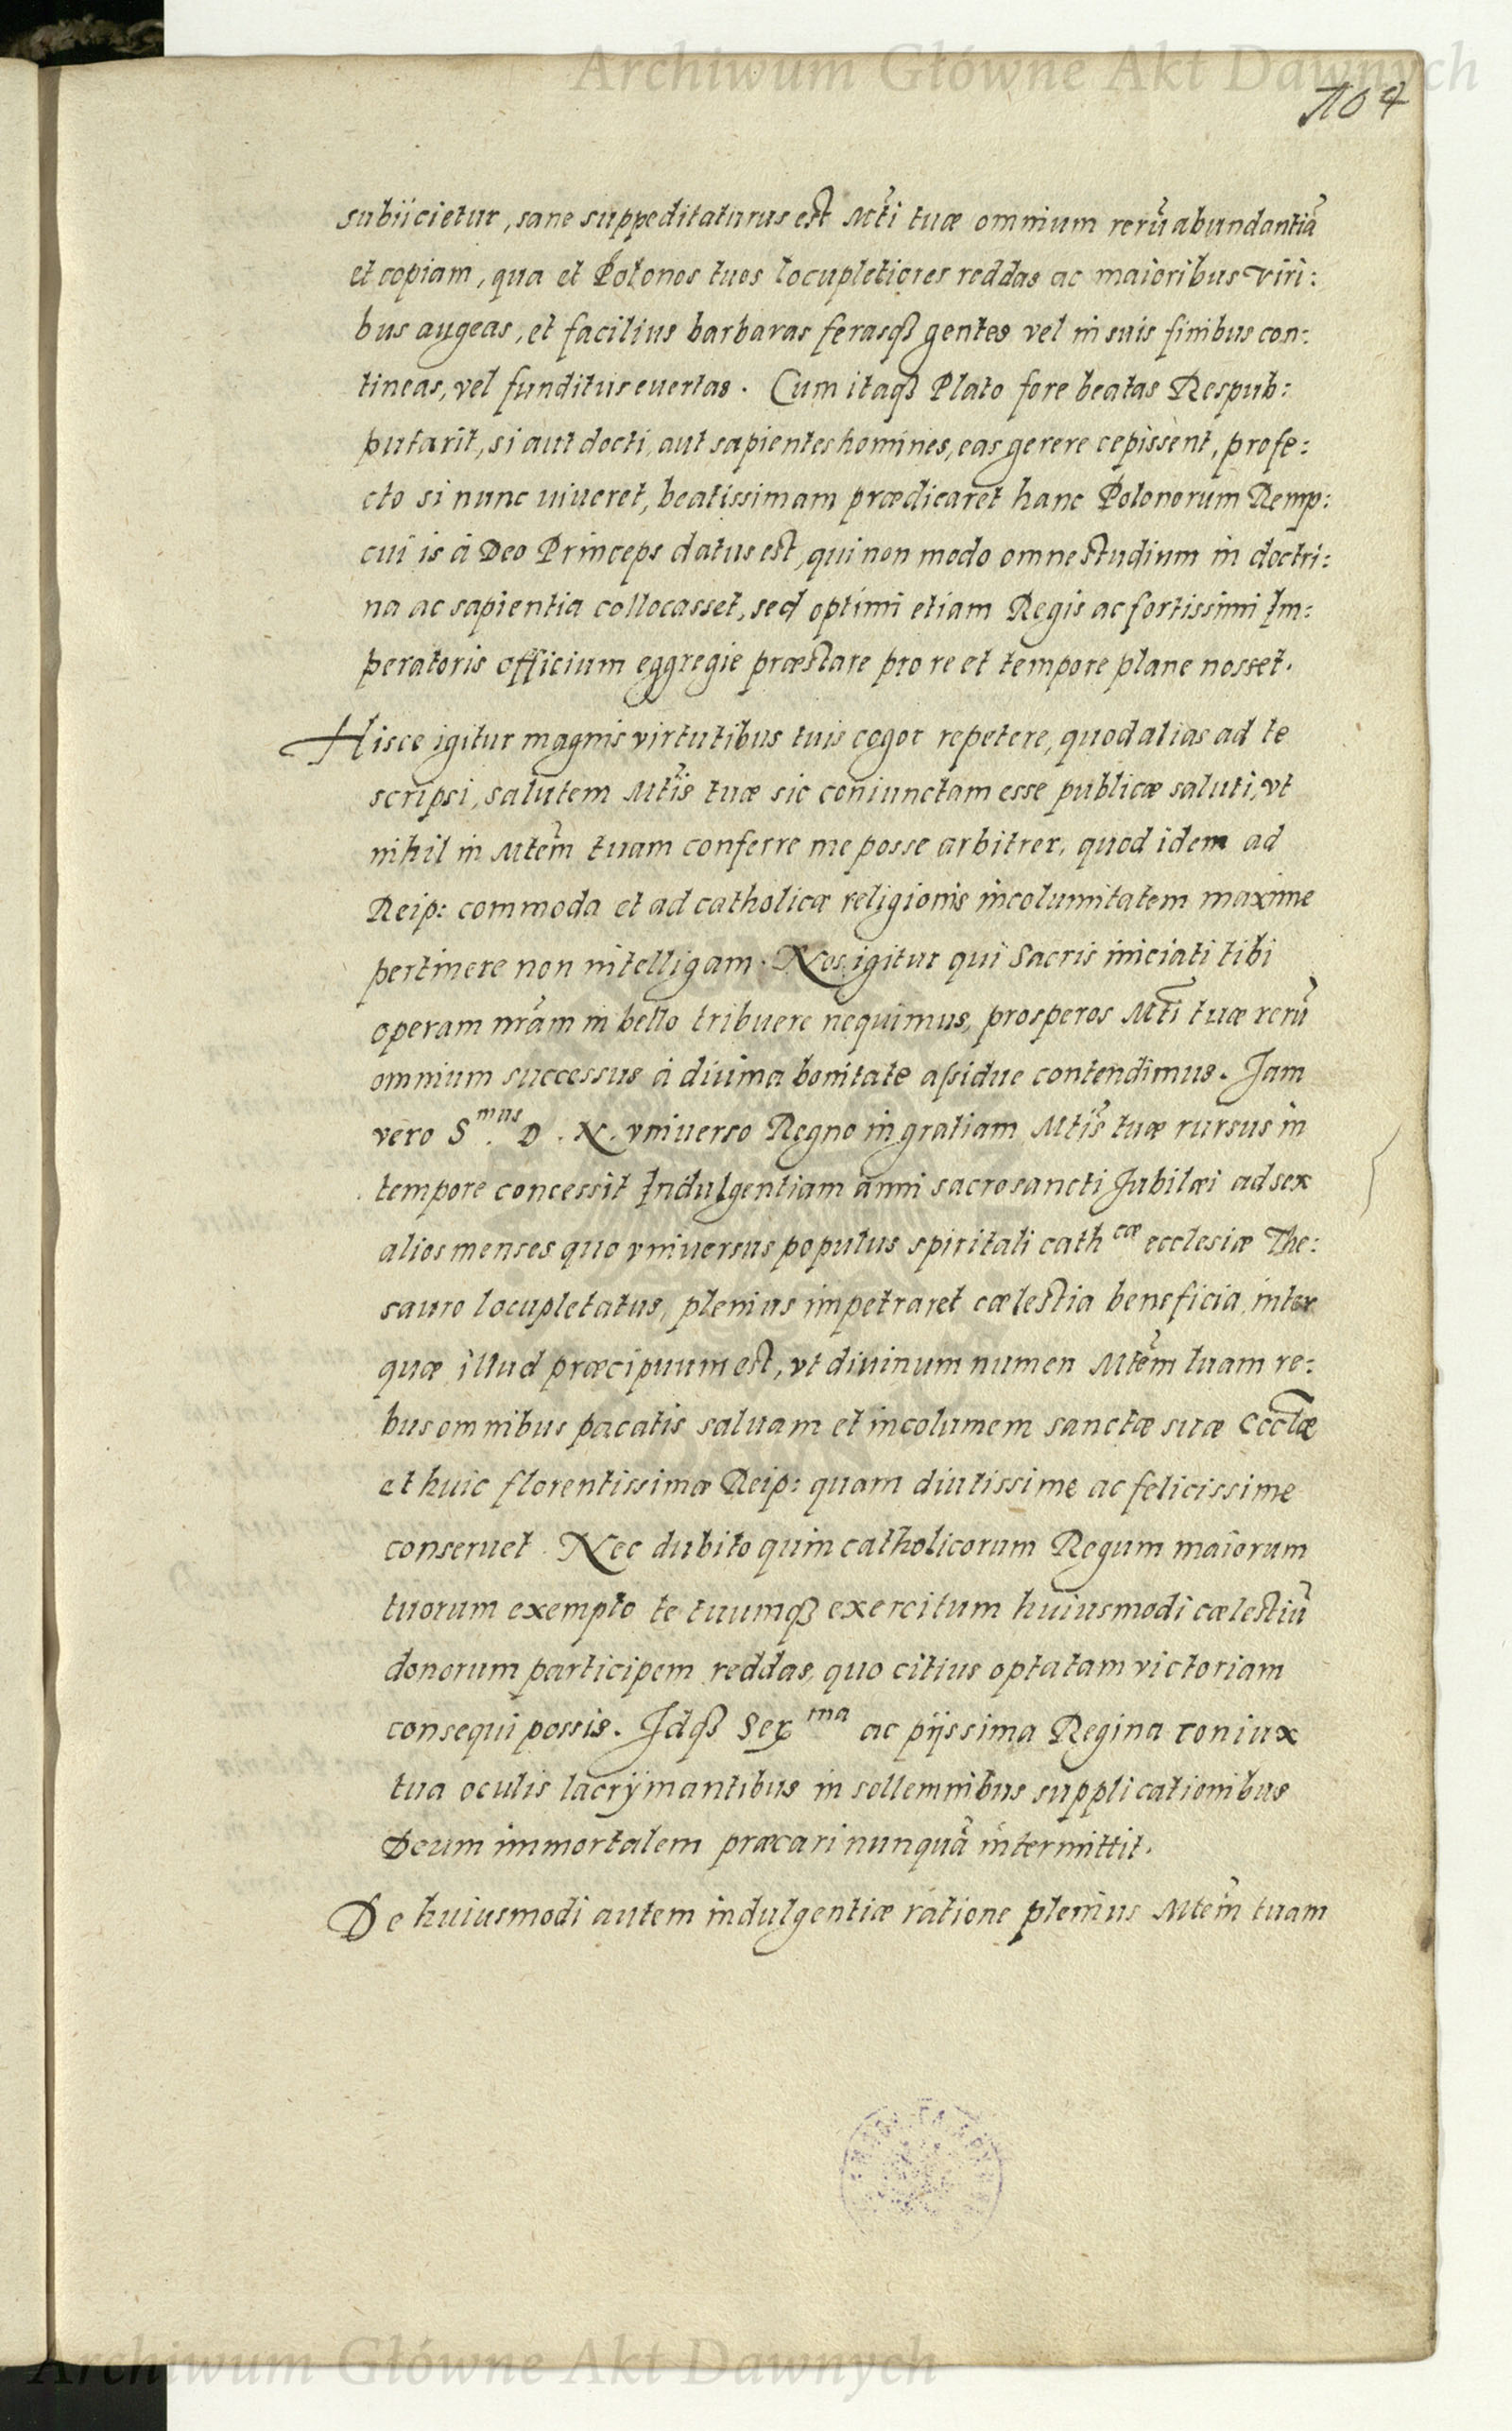 Archiwum Główne Akt Dawnych
104
subiicietur, sane suppeditaturus est Mti tuæ omnium rerũ abundantiã
et copiam, qua et Polonos tuos locupletiores reddas ac maioribus viri:
bus augeas, et facilius barbaras ferasqȝ gentes vel in suis finibus con:
tineas, vel funditus euertas. Cum itaqȝ Plato fore beatas Respub:
putarit, si aut docti, aut sapientes homines, eas gerere cepissent, profe:
cto si nunc uiueret, beatissimam prædicaret hanc Polonorum Remp:
cui is à Deo Princeps datus est, qui non modo omne studium in doctri:
na ac sapientia collocasset, sed optimi etiam Regis ac fortissimi Im:
peratoris officium eggregie præstare pro re et tempore plane nosset.
Hisce igitur magnis virtutibus tuis cogor repetere, quod alias ad te
scripsi, salutem Mtis tuæ sic coniunctam esse publicæ saluti, vt
nihil in Mtem tuam conferre me posse arbitrer, quod idem ad
Reip: commoda et ad catholicæ religionis incolumitatem maxime
pertinere non intelligam. Nos igitur qui Sacris iniciati tibi
operam nrãm in bello tribuere nequimus, prosperos Mti tuæ rerũ
omnium successus à diuina bonitate assidue contendimus. Jam
vero S.mus D. N. vniuerso Regno in gratiam Mtis tuæ rursus in
tempore concessit Indulgentiam anni sacrosancti Jubilæi ad sex
alios menses quo vniuersus populus spiritali cathcæ ecclesiæ The:
sauro locupletatus, plenius impetraret cælestia beneficia, inter
quæ illud præcipuum est, vt diuinum numen Mtem tuam re:
bus omnibus pacatis saluam et incolumem sanctæ suæ Eccłæ
et huic florentissimæ Reip: quam diutissime ac felicissime
conseruet. Nec dubito quin catholicorum Regum maiorum
tuorum exemplo te tuumqȝ exercitum huiusmodi cælestiũ
donorum participem reddas, quo citius optatam victoriam
consequi possis. Jdqȝ Serma ac pijssima Regina coniux
tua oculis lacrÿmantibus in sollemnibus supplicationibus
Deum immortalem præcari nunquã intermittit.
De huiusmodi autem indulgentiæ ratione plenius Mtem tuam
Archiwum Główne Akt Dawnych